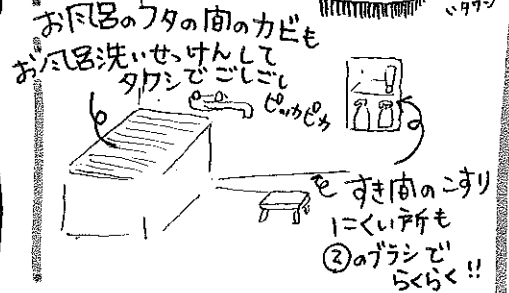 いタワシ
お風呂のフタの間のカビも
お風呂洗いせっけんして
タワシでごしごし
ピッカピカ
すき間のこすり
にくい所も
②のブラシで
らくらく!!